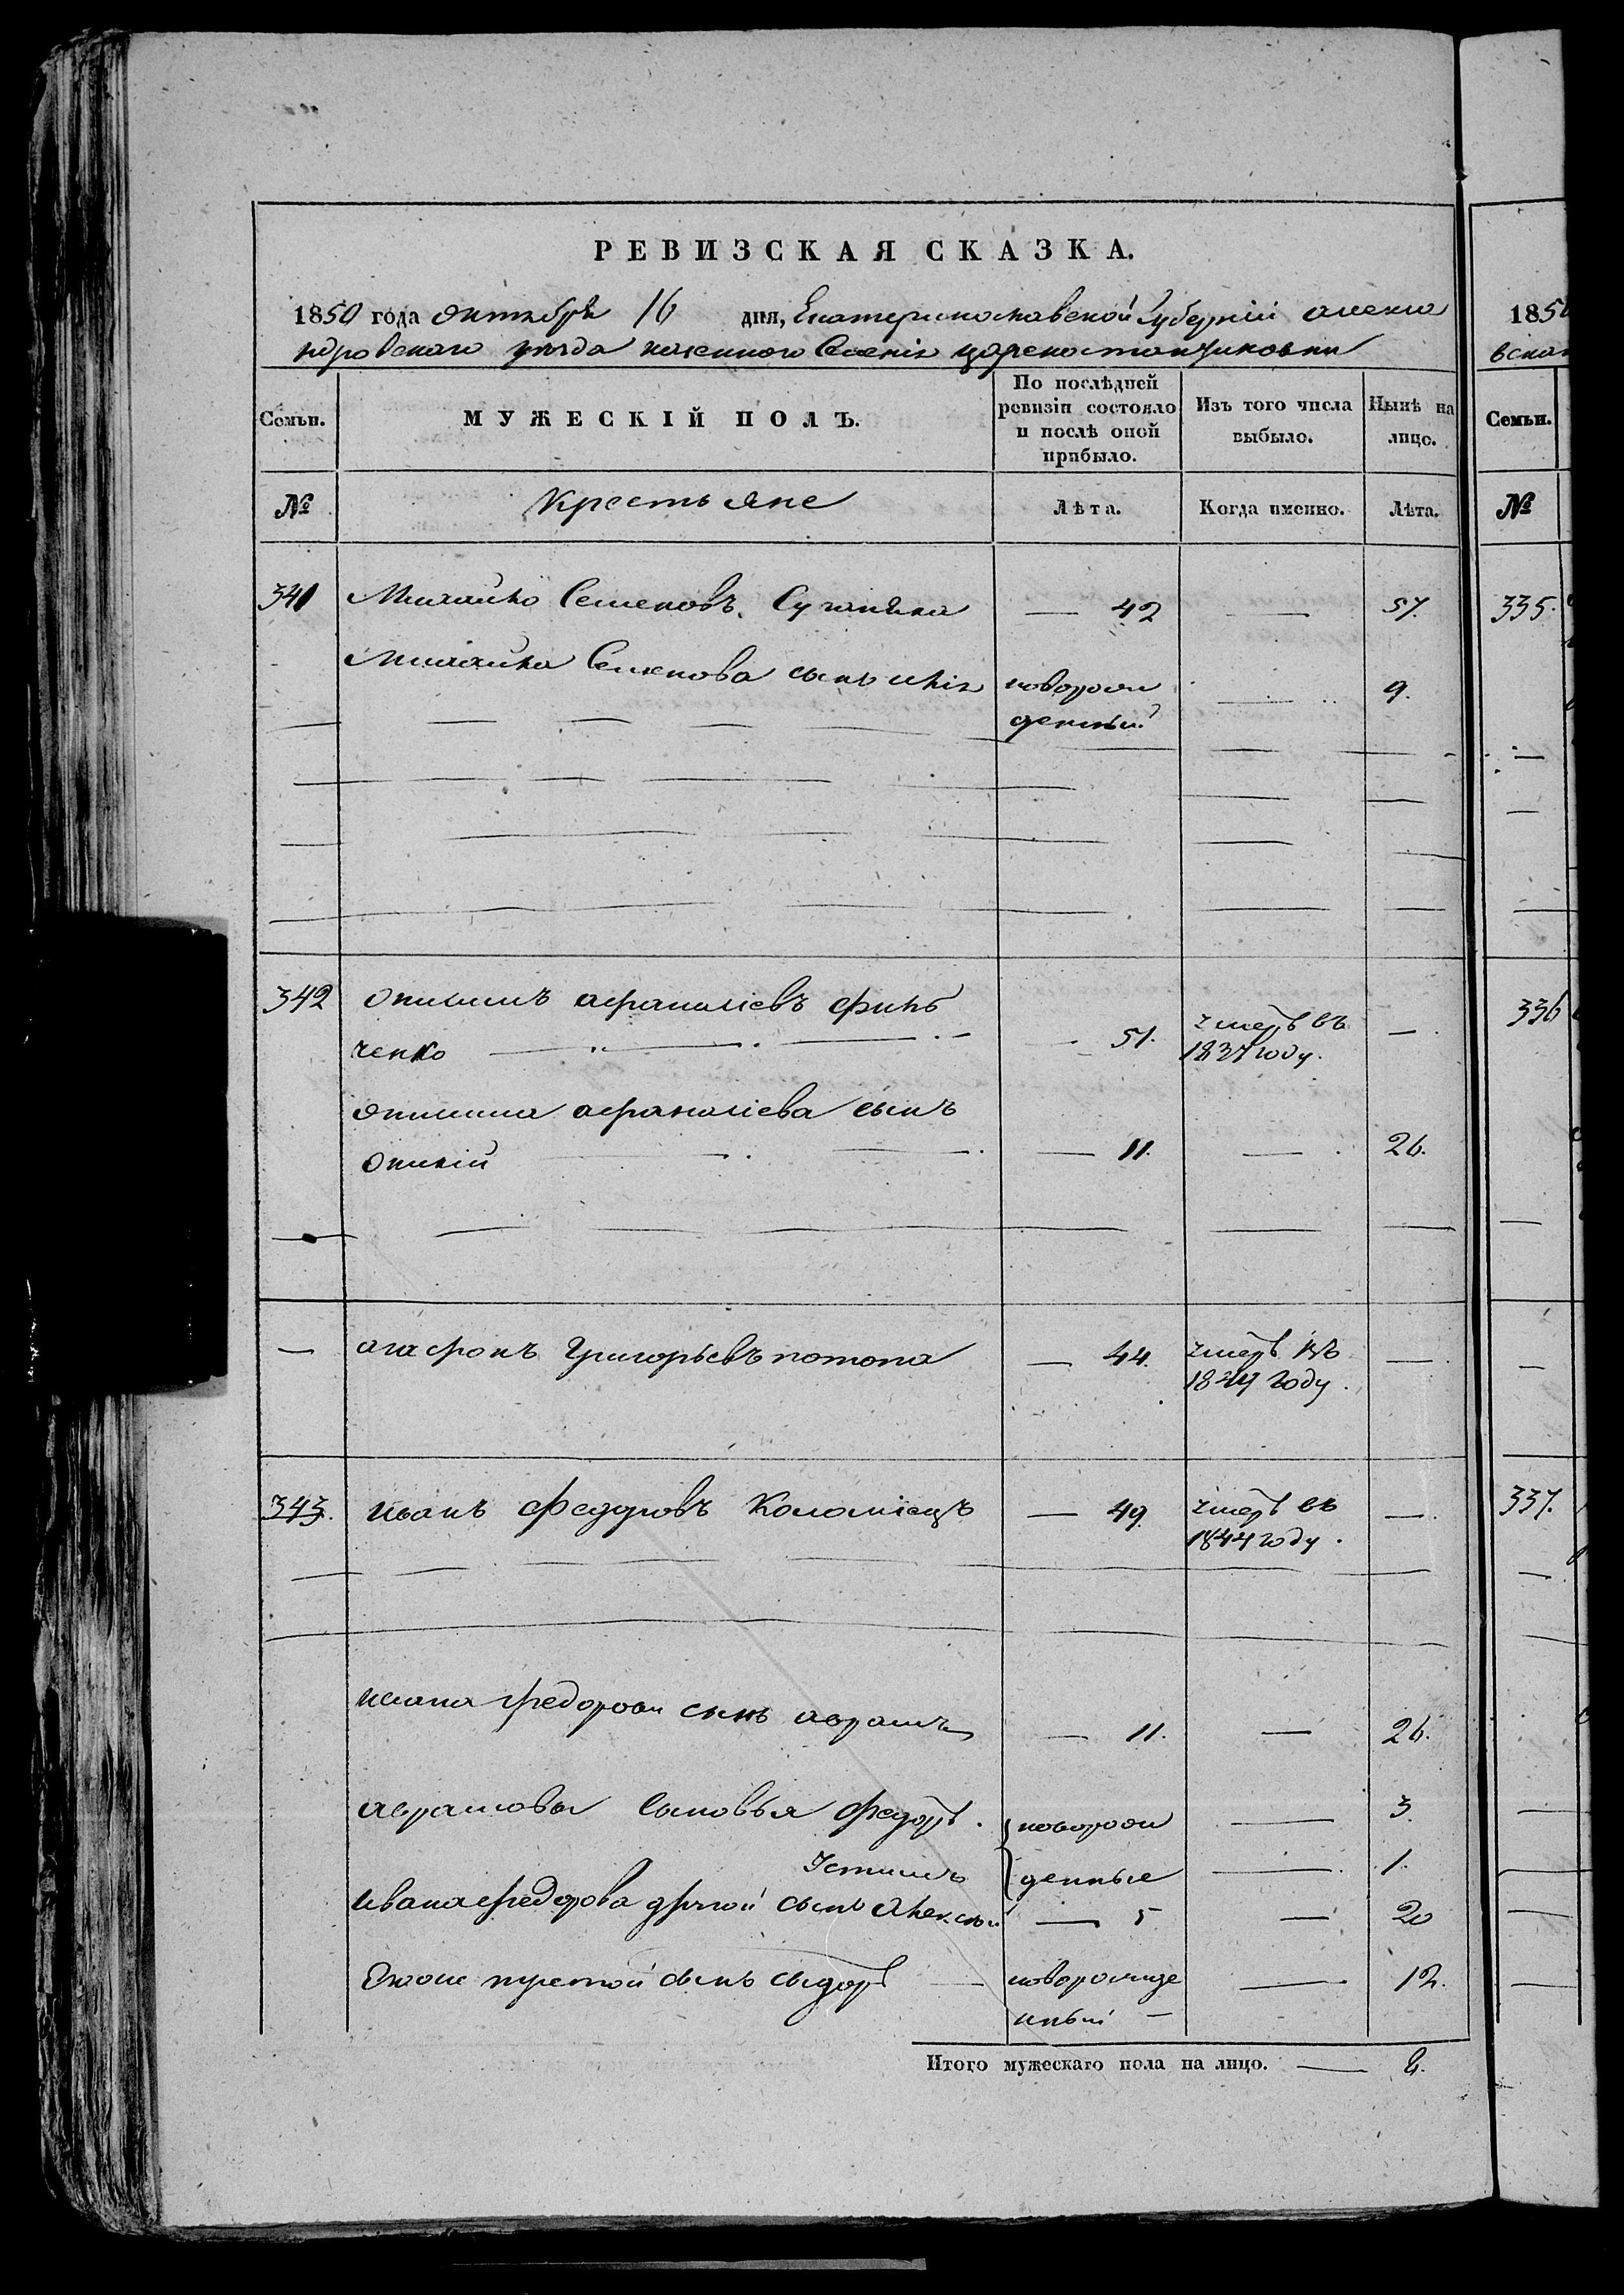 РЕВИЗСКАЯ СКАЗКА.
1850 года октября 16 дня, Екатеринославской Губерніи алекса
ндровскаго уѣзда казеннаго Селенія
Семьи. МУЖЕСКІЙ ПОЛЪ. По послѣдней ревизіи состояло и послѣ оной прибыло. Изъ того числа выбыло. Нынѣ на лицо.
№ Крестьяне Лѣта. Когда именно. Лѣта.
341 Михайло Семеновъ — 42 — 57.
Михайла Семенова сынъ новорож — 9.
денный
342 афанасіевъ финь
ченко — 51. умеръ въ 1837 году. —
афанасіева сынъ
— 11. — 26.
— агафонъ Григорьевъ потопа — 44. умеръ въ —
году.
343. иванъ Федоровъ Коломіецъ — 49. умеръ въ —
1844 году.
ивана федорова сынъ аврамъ — 11. — 26.
аврамовы сыновья федоръ. новорож — 3.
Устимъ денные — 1.
ивана федорова другой сынъ Алексѣй — 5 — 20
Егоже третій сынъ сидоръ — новорожде — 12.
нный —
Итого мужескаго пола на лицо. — 8.
1850
Семьи.
№
335.
336
337.